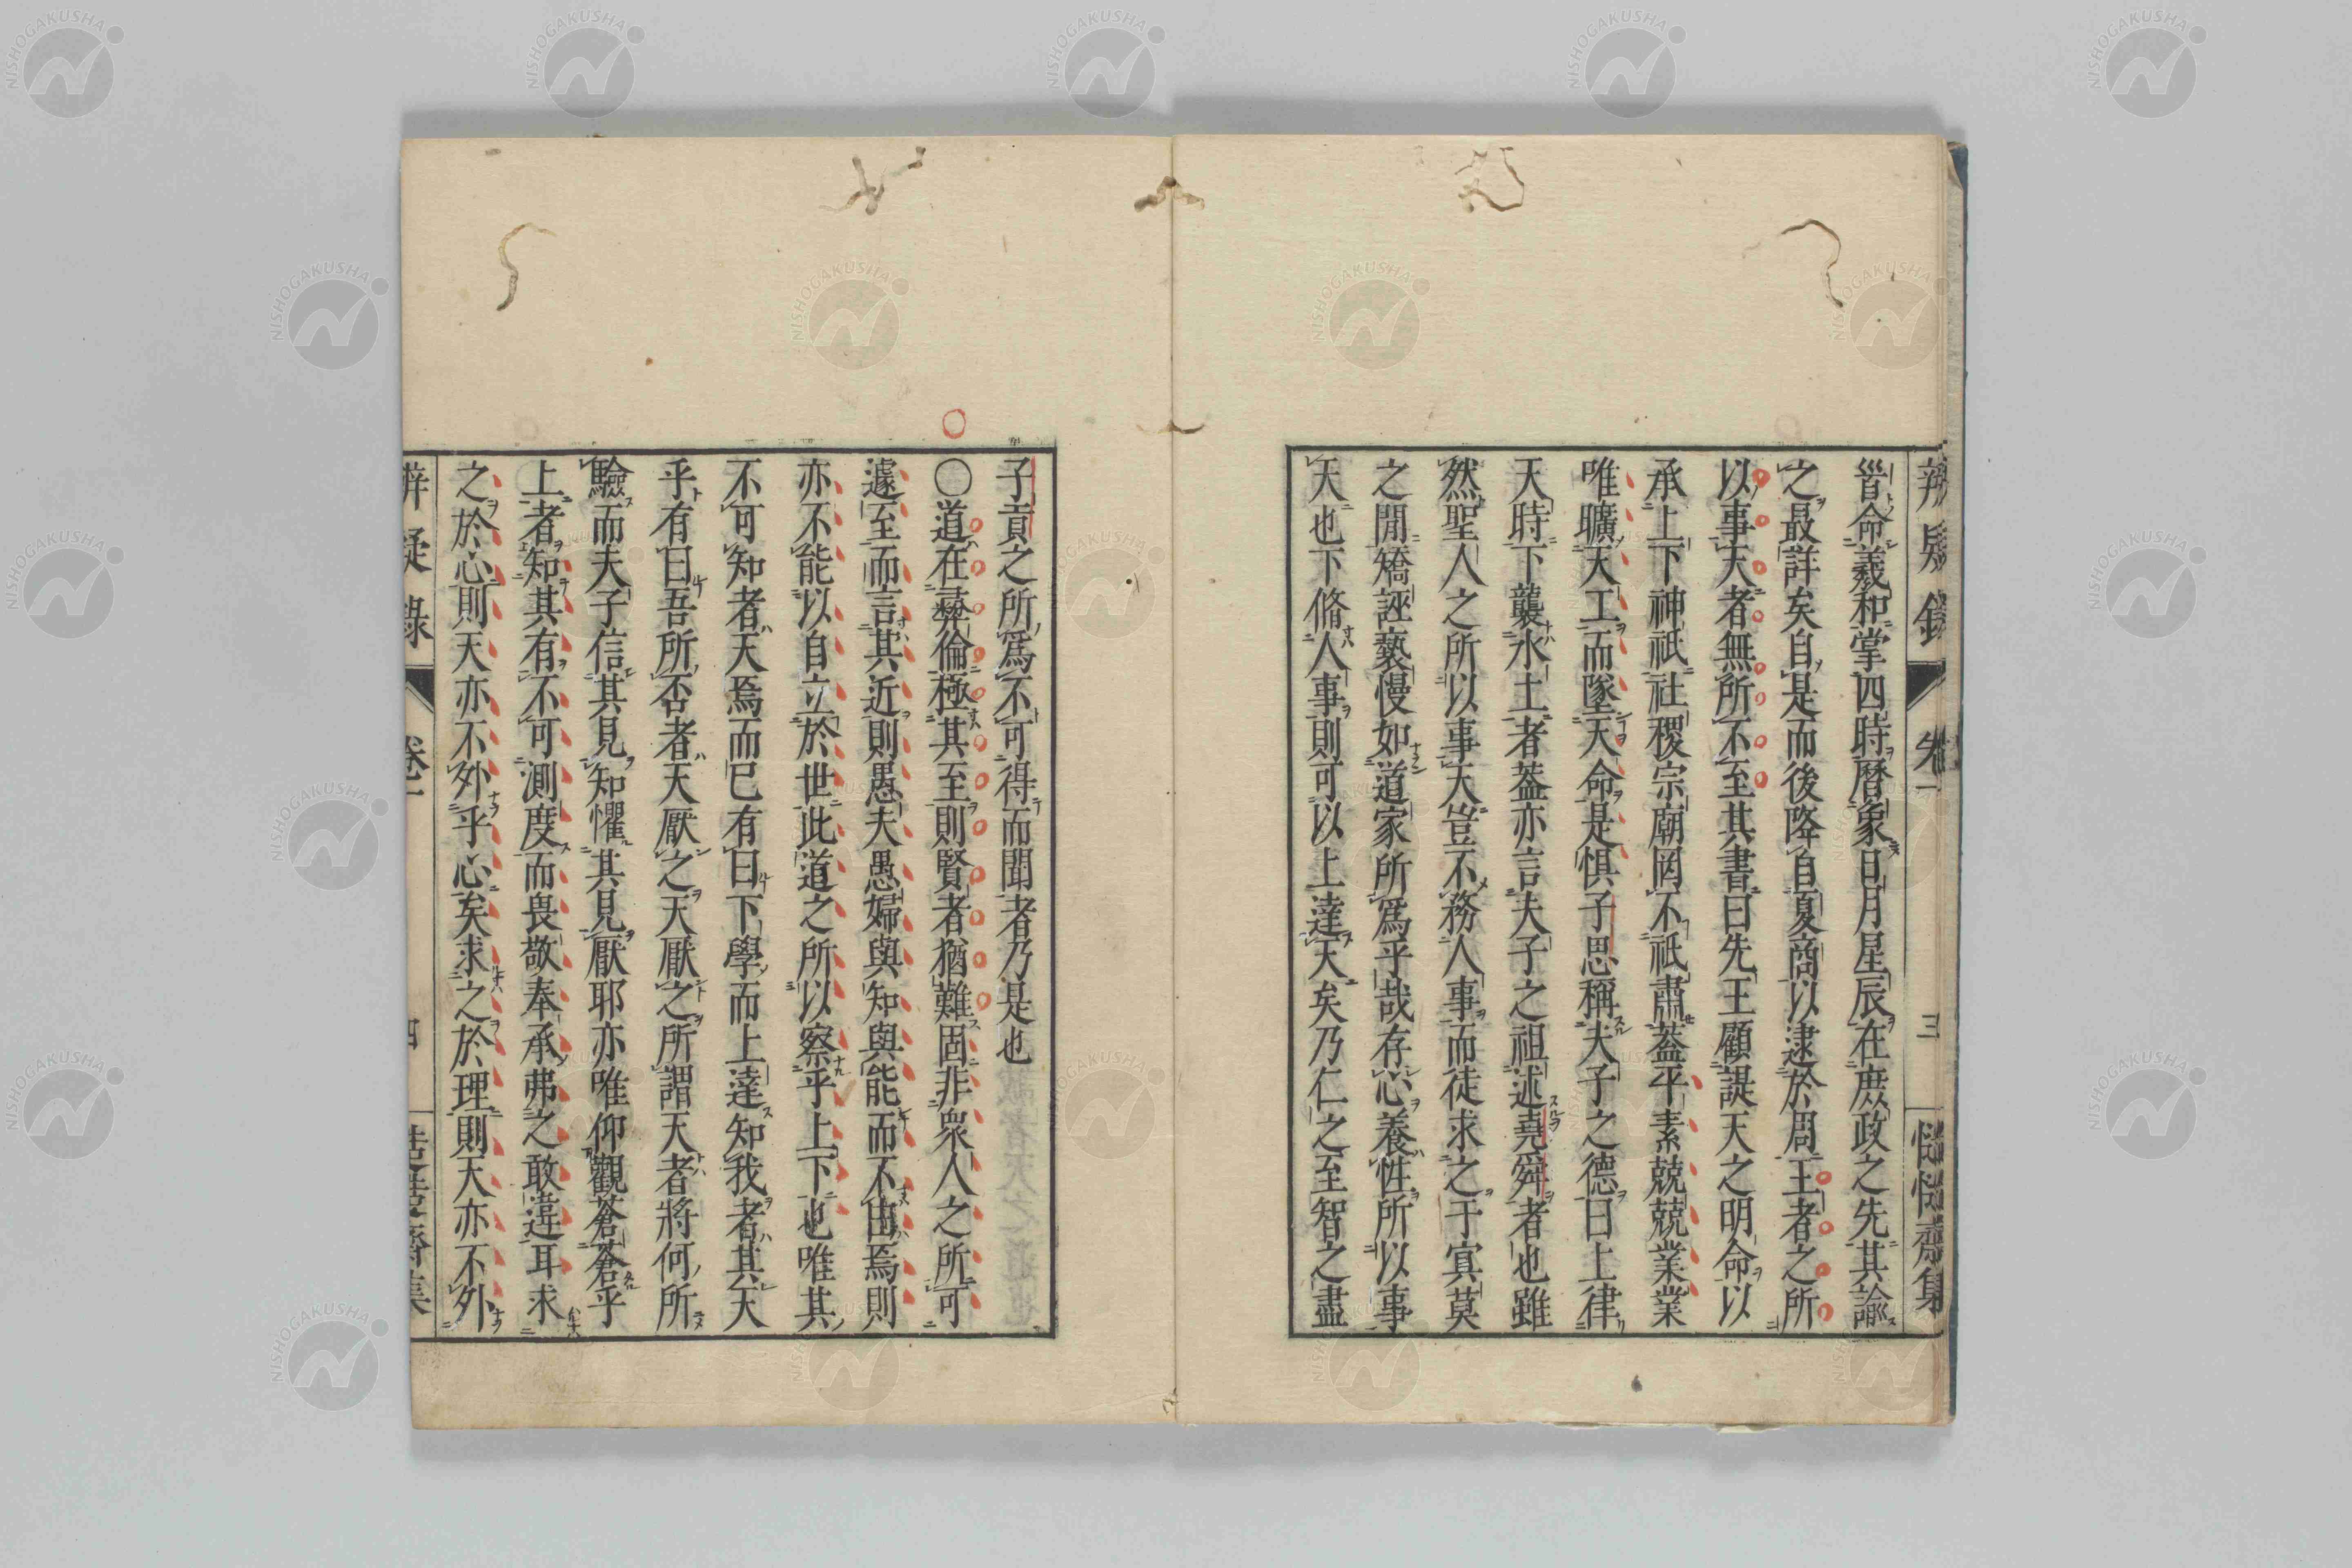 辨疑錄 卷一 三 慥慥齋集
咨命羲和掌四時曆象日月星辰在庶政之先其諭
之最詳矣自是而後降自夏商以逮於周王者之所
以事天者無所不至其書曰先王顧諟天之明命以
承上下神祇社稷宗廟罔不祇肅蓋平素兢兢業業
唯曠天工而墜天命是惧子思稱夫子之德曰上律
天時下襲水土者蓋亦言夫子之祖述堯舜者也雖
然聖人之所以事天豈不務人事而徒求之于寘莫
之閒矯誣褻慢如道家所爲乎哉存心養性所以事
天也下脩人事則可以上達天矣乃仁之至智之盡
子貢之所爲不可得而聞者乃是也
〇道在彝倫極其至則賢者猶難固非衆人之所可
遽至而言其近則愚夫愚婦與知與能而不由焉則
亦不能以自立於世此道之所以察乎上下也唯其
不可知者天焉而已有曰下學而上達知我者其天
乎有曰吾所否者天厭之天厭之所謂天者將何所
驗而夫子信其見知懼其見厭耶亦唯仰觀蒼蒼乎
上者知其有不可測度而畏敬奉承弗之敢違耳求
之於心則天亦不外乎心矣求之於理則天亦不外
辨疑錄 卷一 四 慥慥齋集
NISHOGAKUSHA